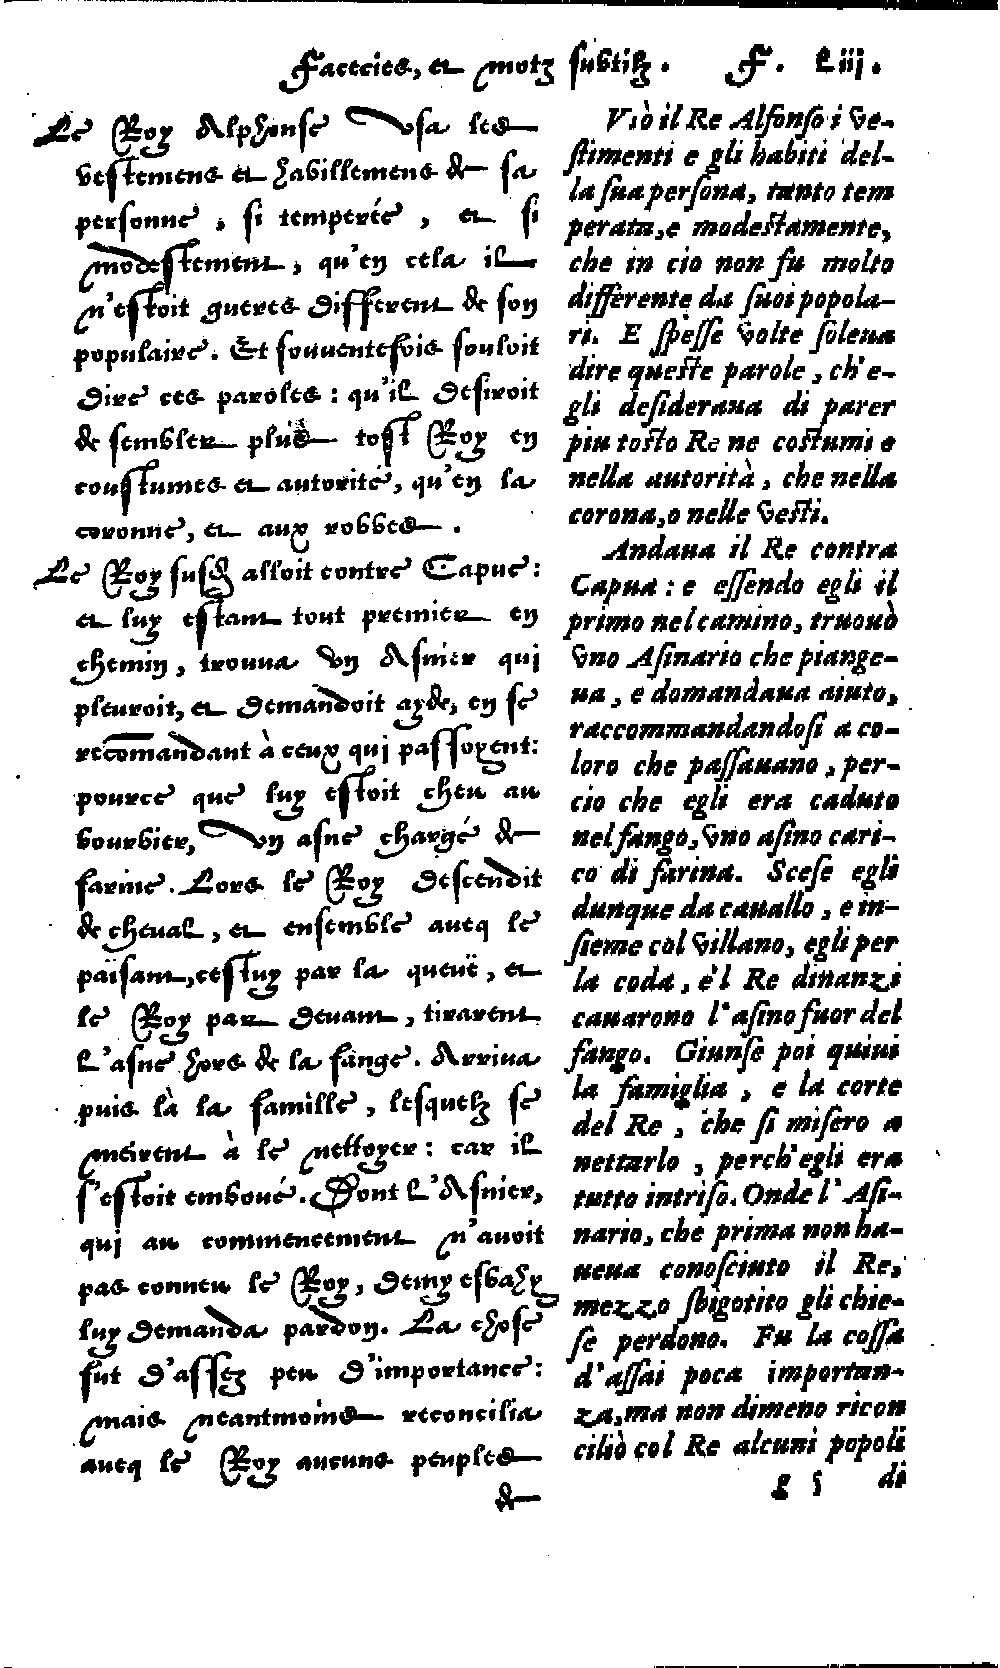 Facecies, et motz subtilz. F. Liij.
Le Roy Alphonse vsa les
vestemens et habillemens de sa
personne, si temperée, et si
modestement, qu'en cela il
n'estoit gueres different de son
populaire. Et souuentefois souloit
dire ces paroles : qu'il desiroit
de sembler plus tost Roy en
coustumes et autorité, qu'en la
coronne, et aux robbes.
Le Roy susdit alloit contre Capue :
et luy estant tout premier en
chemin, trouua vn Asnier qui
pleuroit, et demandoit ayde, en se
recõmandant à ceux qui passoyent :
pource que luy estoit cheu au
bourbier, vn asne chargé de
farine. Lors le Roy descendit
de cheual, et ensemble aueq le
païsant, cestuy par la queuë, et
le Roy par deuant, tirarent
l'asne hors de la fange. Arriua
puis là la famille, lesquelz se
meirent à le nettoyer : car il
s'estoit emboué. Dont l'Asnier,
qui au commencement n'auoit
pas conneu le Roy, demy esbahy
luy demanda pardon. La chose
fut d'assez peu d'importance :
mais neantmoins reconcilia
aueq le Roy aucuns peuples
de
Vsò il Re Alfonso i ve-
stimenti e gli habiti del-
la sua persona, tanto tem
perata, e modestamente,
che in cio non fu molto
differente da suoi popola-
ri. E spesse volte soleua
dire queste parole, ch'e-
gli desideraua di parer
piu tosto Re ne costumi e
nella autorità, che nella
corona, o nelle vesti.
Andaua il Re contra
Capua : e essendo egli il
primo nel camino, truouò
vno Asinario che piange-
ua, e domandaua aiuto,
raccommandandosi a co-
loro che passauano, per-
cio che egli era caduto
nel fango, vno asino cari-
co di farina. Scese egli
dunque da cauallo, e in-
sieme col villano, egli per
la coda, e'l Re dinanzi
cauarono l'asino fuor del
fango. Giunse poi quiui
la famiglia, e la corte
del Re, che si misero a
nettarlo, perch'egli era
tutto intriso. Onde l'Asi-
nario, che prima non ha-
ueua conosciuto il Re,
mezzo sbigotito gli chie-
se perdono. Fu la cossa
d'assai poca importan-
za, ma non dimeno ricon
ciliò col Re alcuni popoli
g 5 di